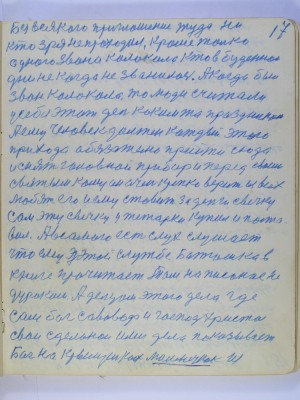 17
Без всякого приглошение туда ни
кто зря не проходил, кроме только
одного звона колокола кто в буденной
дни не когда не званилы. А когда был
звон колокола, то люди считали
у себя этот ден каким то праздником
Человек должен каждый этого
прихода обязательно прийти сюда
и снять головной прибор и перед своим
святыми кому он очен крепко верит и их
любят его и ему ставит за денги свичку
Сам эту свичку у тетарки купил и поста
вил. А в самого ест слух слушает
что ему в этой службе батюшка в
книге прочитает Там написоная не
дураком. А делцом этого дела где
сам бог савовоф и господ христос
свои сделоном ими дела показывает